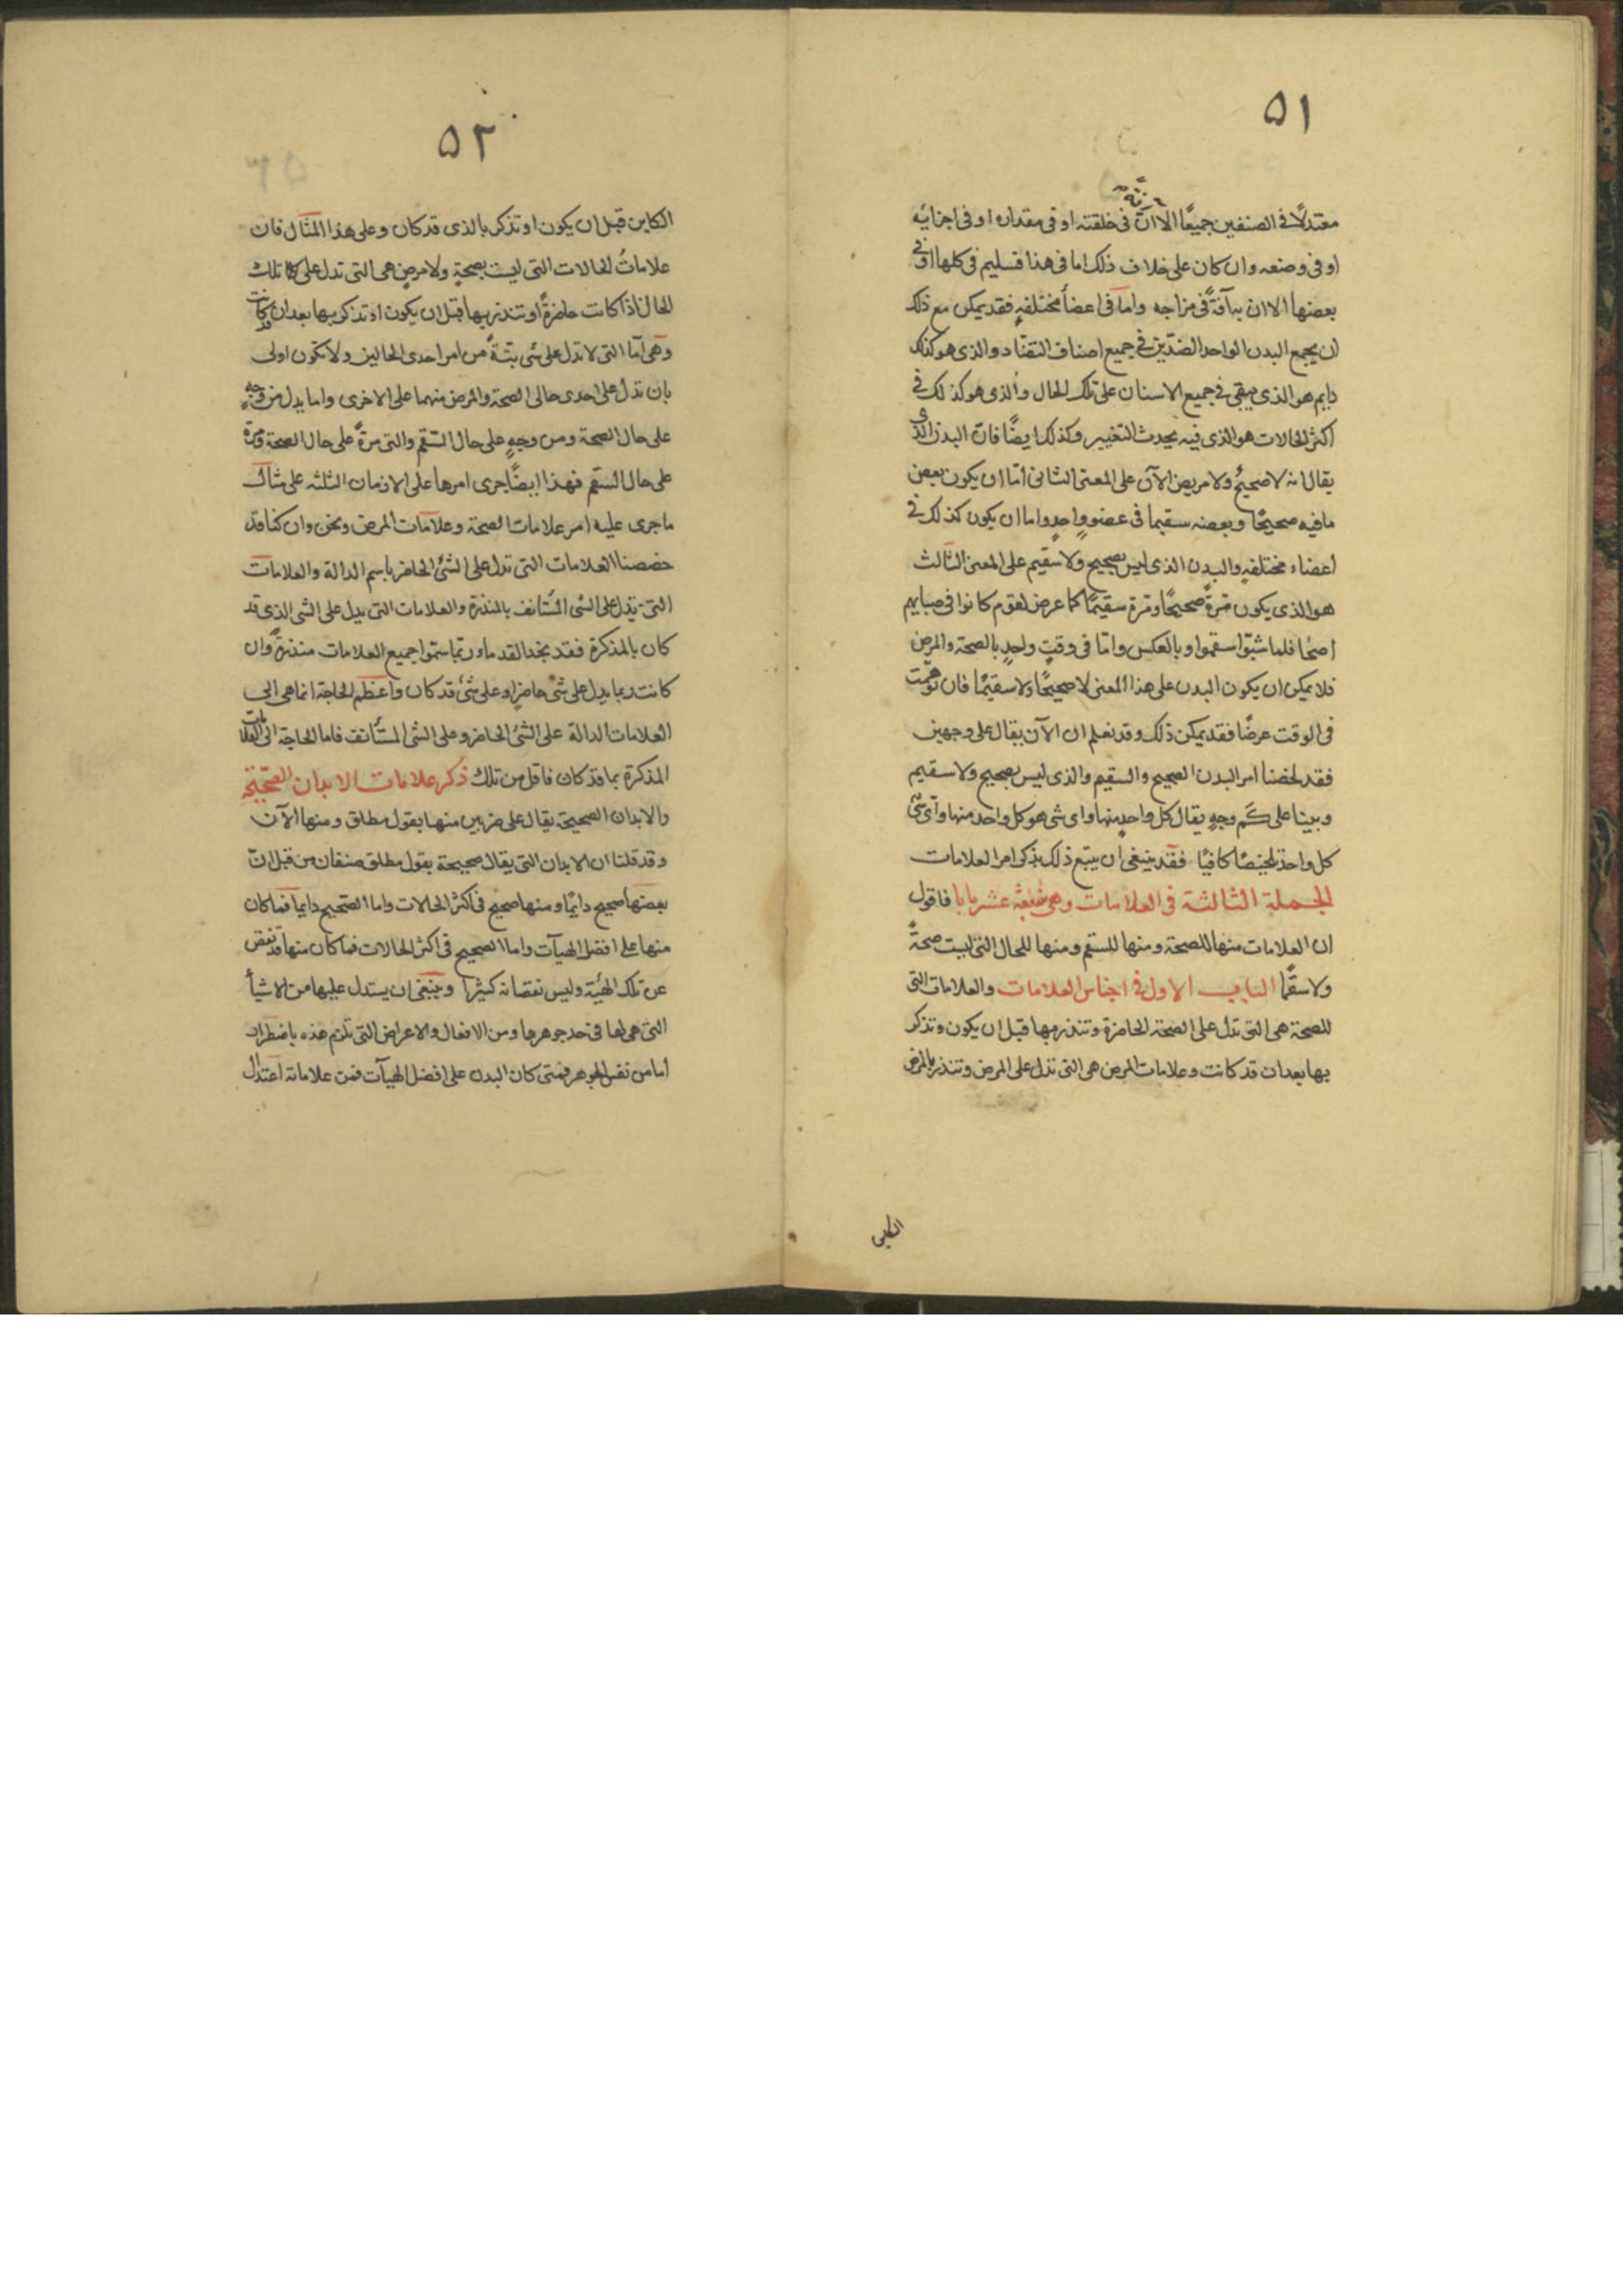 ٥١
معتدلًا فى الصنفين جميعًا الا ان فى خلقته او فى مقداره او فى اجزائه
او فى وضعه وان كان على خلاف ذلك اما فى هذا فسليم فى كلها او فى
بعضها الا ان به آفةً فى مزاجه واما فى اعضأ مختلفةٍ فقد يمكن مع ذلك
ان يجمع البدن الواحد الضدّين فى جميع اصناف التضاد والذى هو كذلك
دايم هو الذى يبقى فى جميع الاسنان على تلك الحال والذى هو كذلك فى
اكثر الحالات هو الذى فيه يحدث التغيير وكذلك ايضًا فان البدن الذى
يقال انه لا صحيحٌ ولا مريض الآن على المعنى الثانى امّا ان يكون بعض
ما فيه صحيحًا وبعضه سقيما فى عضوٍ واحدٍ واما ان يكون كذلك فى
اعضاء مختلفةٍ والبدن الذى ليس بصحيح ولا سقيم على المعنى الثالث
هو الذى يكون مرةً صحيحًا ومرة سقيمًا كما عرض لقوم كانوا فى صبايهم
اصحّا فلما شبّوا سقموا وبالعكس وامّا فى وقتٍ واحدٍ بالصحة والمرض
فلا يمكن ان يكون البدن على هذا المعنى لا صحيحًا ولا سقيمًا فان توهمت
فى الوقت عرضًا فقد يمكن ذلك وقد نعلم ان الآن يقال على وجهين
فقد لخصنا امر البدن الصحيح والسقيم والذى ليس بصحيح ولا سقيم
وبينا على كَم وجهٍ يقال كل واحدٍ منها واى شى هو كل واحد منها واى شى
كل واحد تلخيصًا كافيًا فقد ينبغى ان يتبع ذلك بذكر امر العلامات
الجملة الثالثة فى العلامات وهى عشر بابا فاقول
ان العلامات منها للصحة ومنها للسقم ومنها للحال التى ليست صحةً
ولا سقمًا الباب الاول فى اجناس العلامات والعلامات التى
للصحة هى التى تدل على الصحة الحاضرة وتنذر بها قبل ان يكون وتذكر
بها بعد ان قد كانت وعلامات المرض هى التى تدل على المرض وتنذر بالمرض
٥٢
الكاين قبل ان يكون او تذكر بالذى قد كان وعلى هذا المثال فان
علاماتُ الحالات التى ليست بصحةٍ ولا مرضٍ هى التى تدل على تلك
الحال اذا كانت حاضرةً او تنذر بها قبل ان يكون او تذكر بها بعد ان كانت
وهى امّا التى لا تدل على شى بتّةً من امر احدى الحالين ولا تكون اولى
بان تدل على احدى حالى الصحة والمرض منهما على الاخرى واما يدل من وجهٍ
على حال الصحة ومن وجهٍ على حال السّقم والتى مرةً على حال الصحة ومرة
على حال السقم فهذا ايضًا جرى امرها على الازمان الثلثه على مثال
ما جرى عليه امر علامات الصحة وعلامات المرض ونحن وان كنا قد
خصصنا العلامات التى تدل على الشئ الحاضر باسم الدالة والعلامات
التى تدل على الشى المستأنف بالمنذرة والعلامات التى يدل على الشى الذى قد
كان بالمذكرة فقد نجد القدماء ربّما سمّوا جميع العلامات منذرةً وان
كانت ربما يدل على شئ حاضرٍ او على شئ قد كان واعظم الحاجة انما هى الى
العلامات الدالة على الشئ الحاضر وعلى الشى المستأنف فاما الحاجة الى العلامات
المذكرة بما قد كان فاقل من تلك ذكر علامات الابدان الصحيحة
والابدان الصحيحة يقال على ضربين منها بقول مطلق ومنها الآن
وقد قلنا ان الابدان التى يقال صحيحة بقول مطلق صنفان من قبل انّ
بعضها صحيح دايمًا ومنها صحيح فى اكثر الحالات واما الصحيح دايما فما كان
منها على افضل الهيآت واما الصحيح فى اكثر الحالات فما كان منها قد نقص
عن تلك الهئة وليس نقصانه كثيرًا وينبغى ان يستدل عليها من الاشيأ
التى هى لها فى حد جوهرها ومن الافعال والاعراض التى تلزم هذه باضطرار
اما من نفس الجوهر فمتى كان البدن على افضل الهيآت فمن علاماته اعتدال